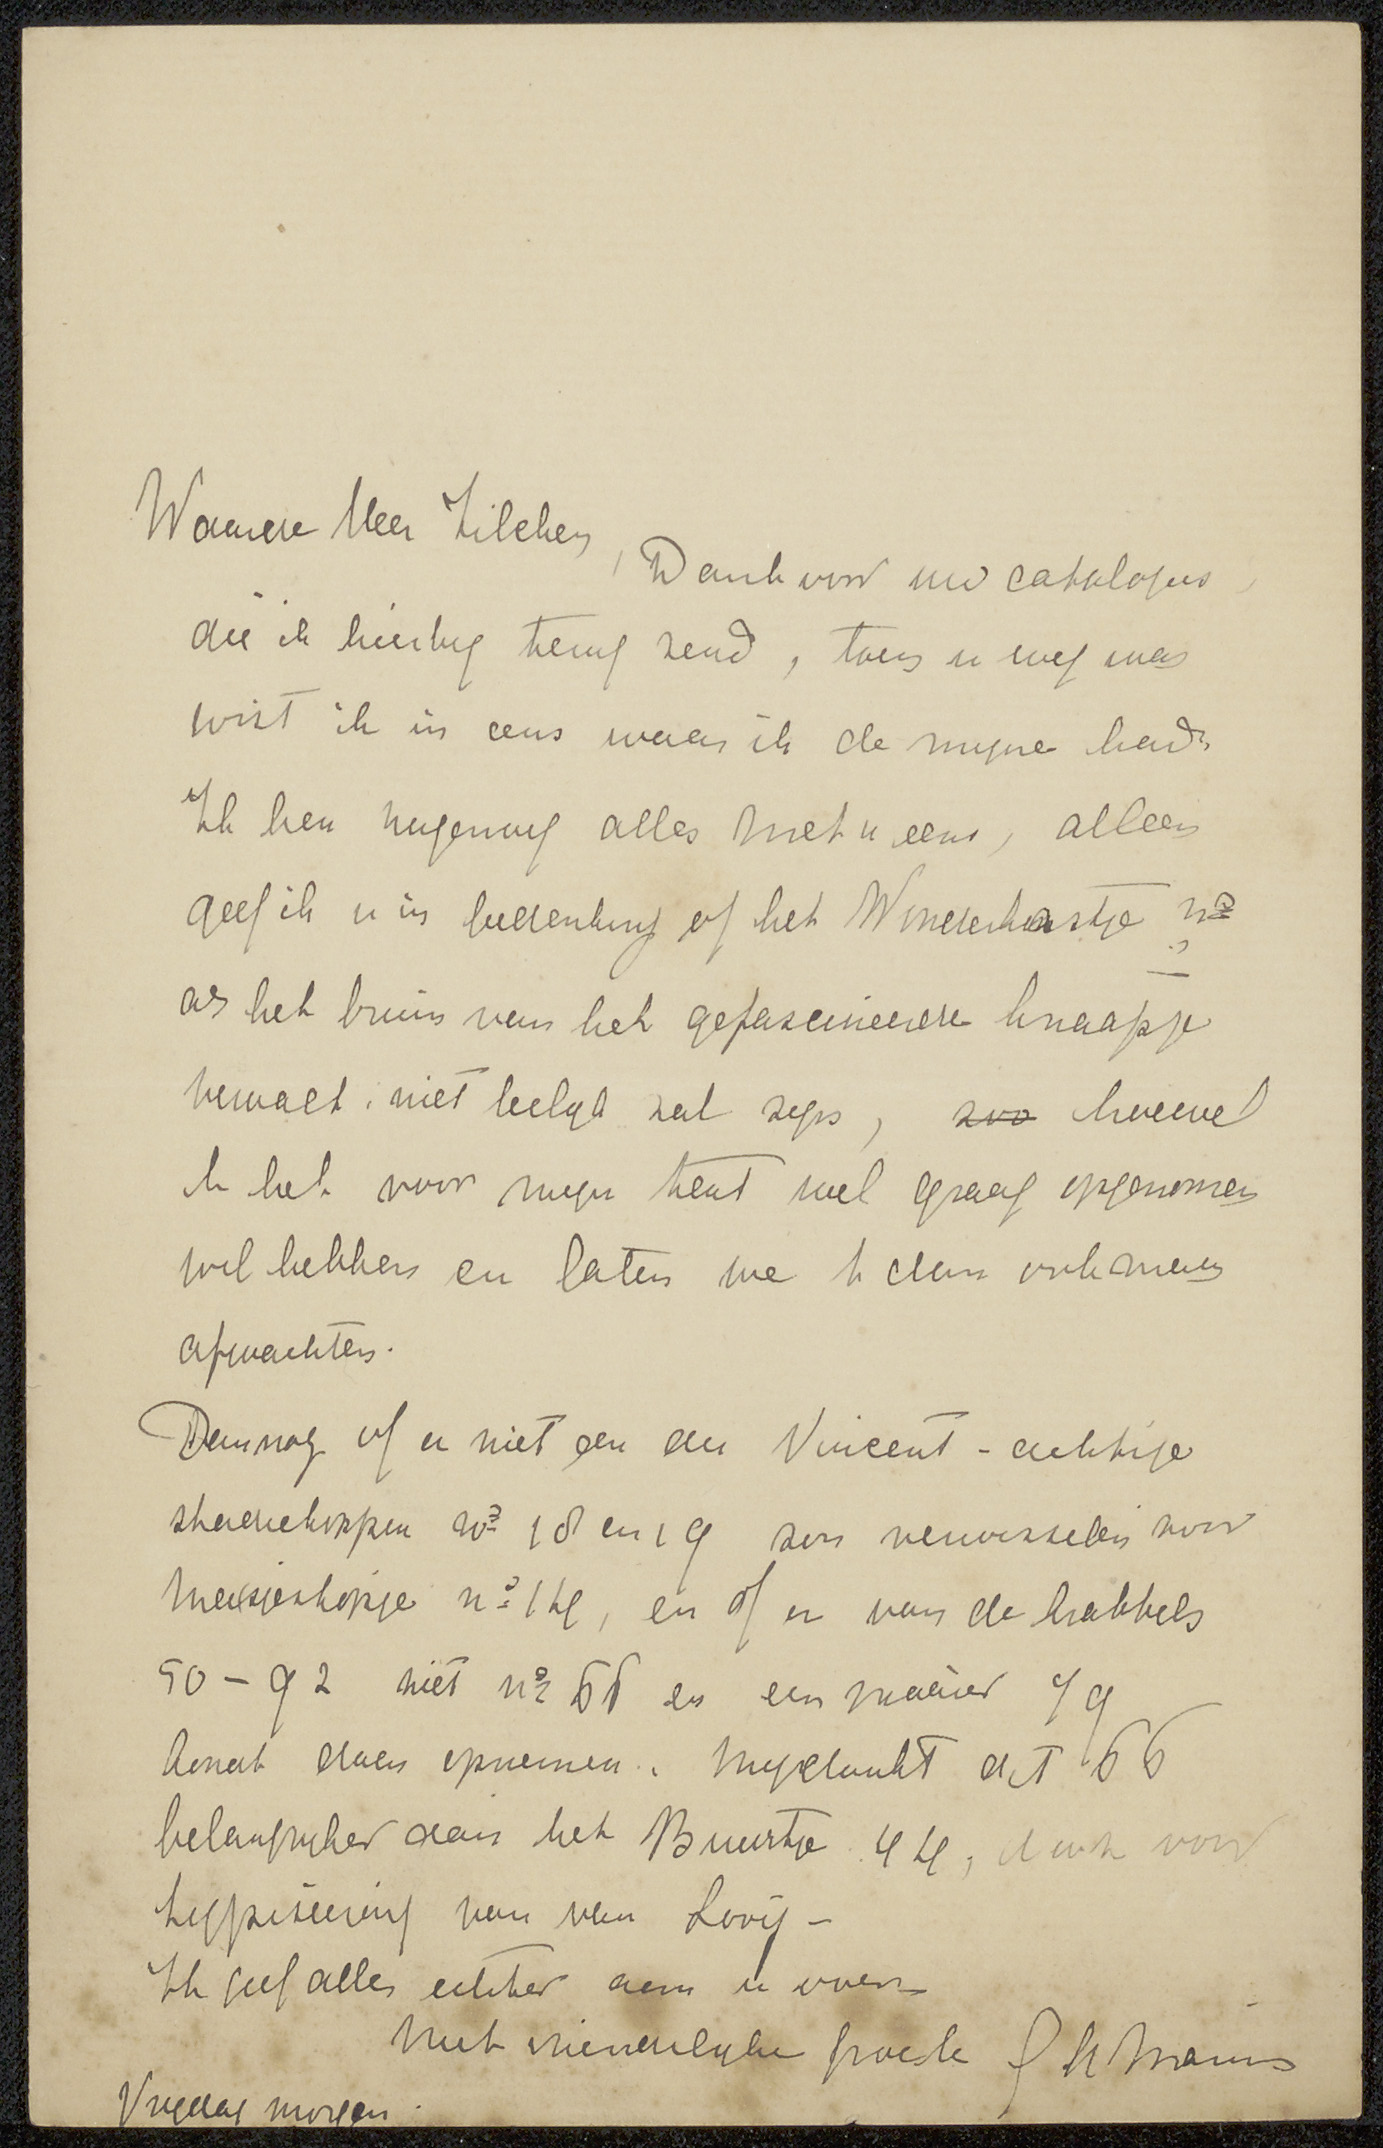 Waarde Heer Zilcken,
Dank voor uw catalogus,
die ik hierbij terug zend, toen u weg was
wist ik in eens waar ik de mijne had.
Ik ben nagenoeg alles met u eens, alleen
geef ik u in bedenking of het Wonderkastje no
as het bruin van het gefascineerde knaapje
niet leelijk zal zijn, zoo hoewel
ik het voor mijn tekst wel graag opgenomen
wil hebben en laten we 't dan ook maar
afwachten.
Dan nog of er niet een der Vincent-achtige
no 18 en 19 zou verwisselen voor
Meisjeskopje no 14, en of er van de krabbels
50-92 niet no 66 en een 79
doen opnemen. Mij dunkt dat 66
belangrijker dan het Buurtje 44, ook voor
typiseering van van Looij -
Ik geef alles echter aan u over
Met vriendelijke groete
Vrijdag morgen.